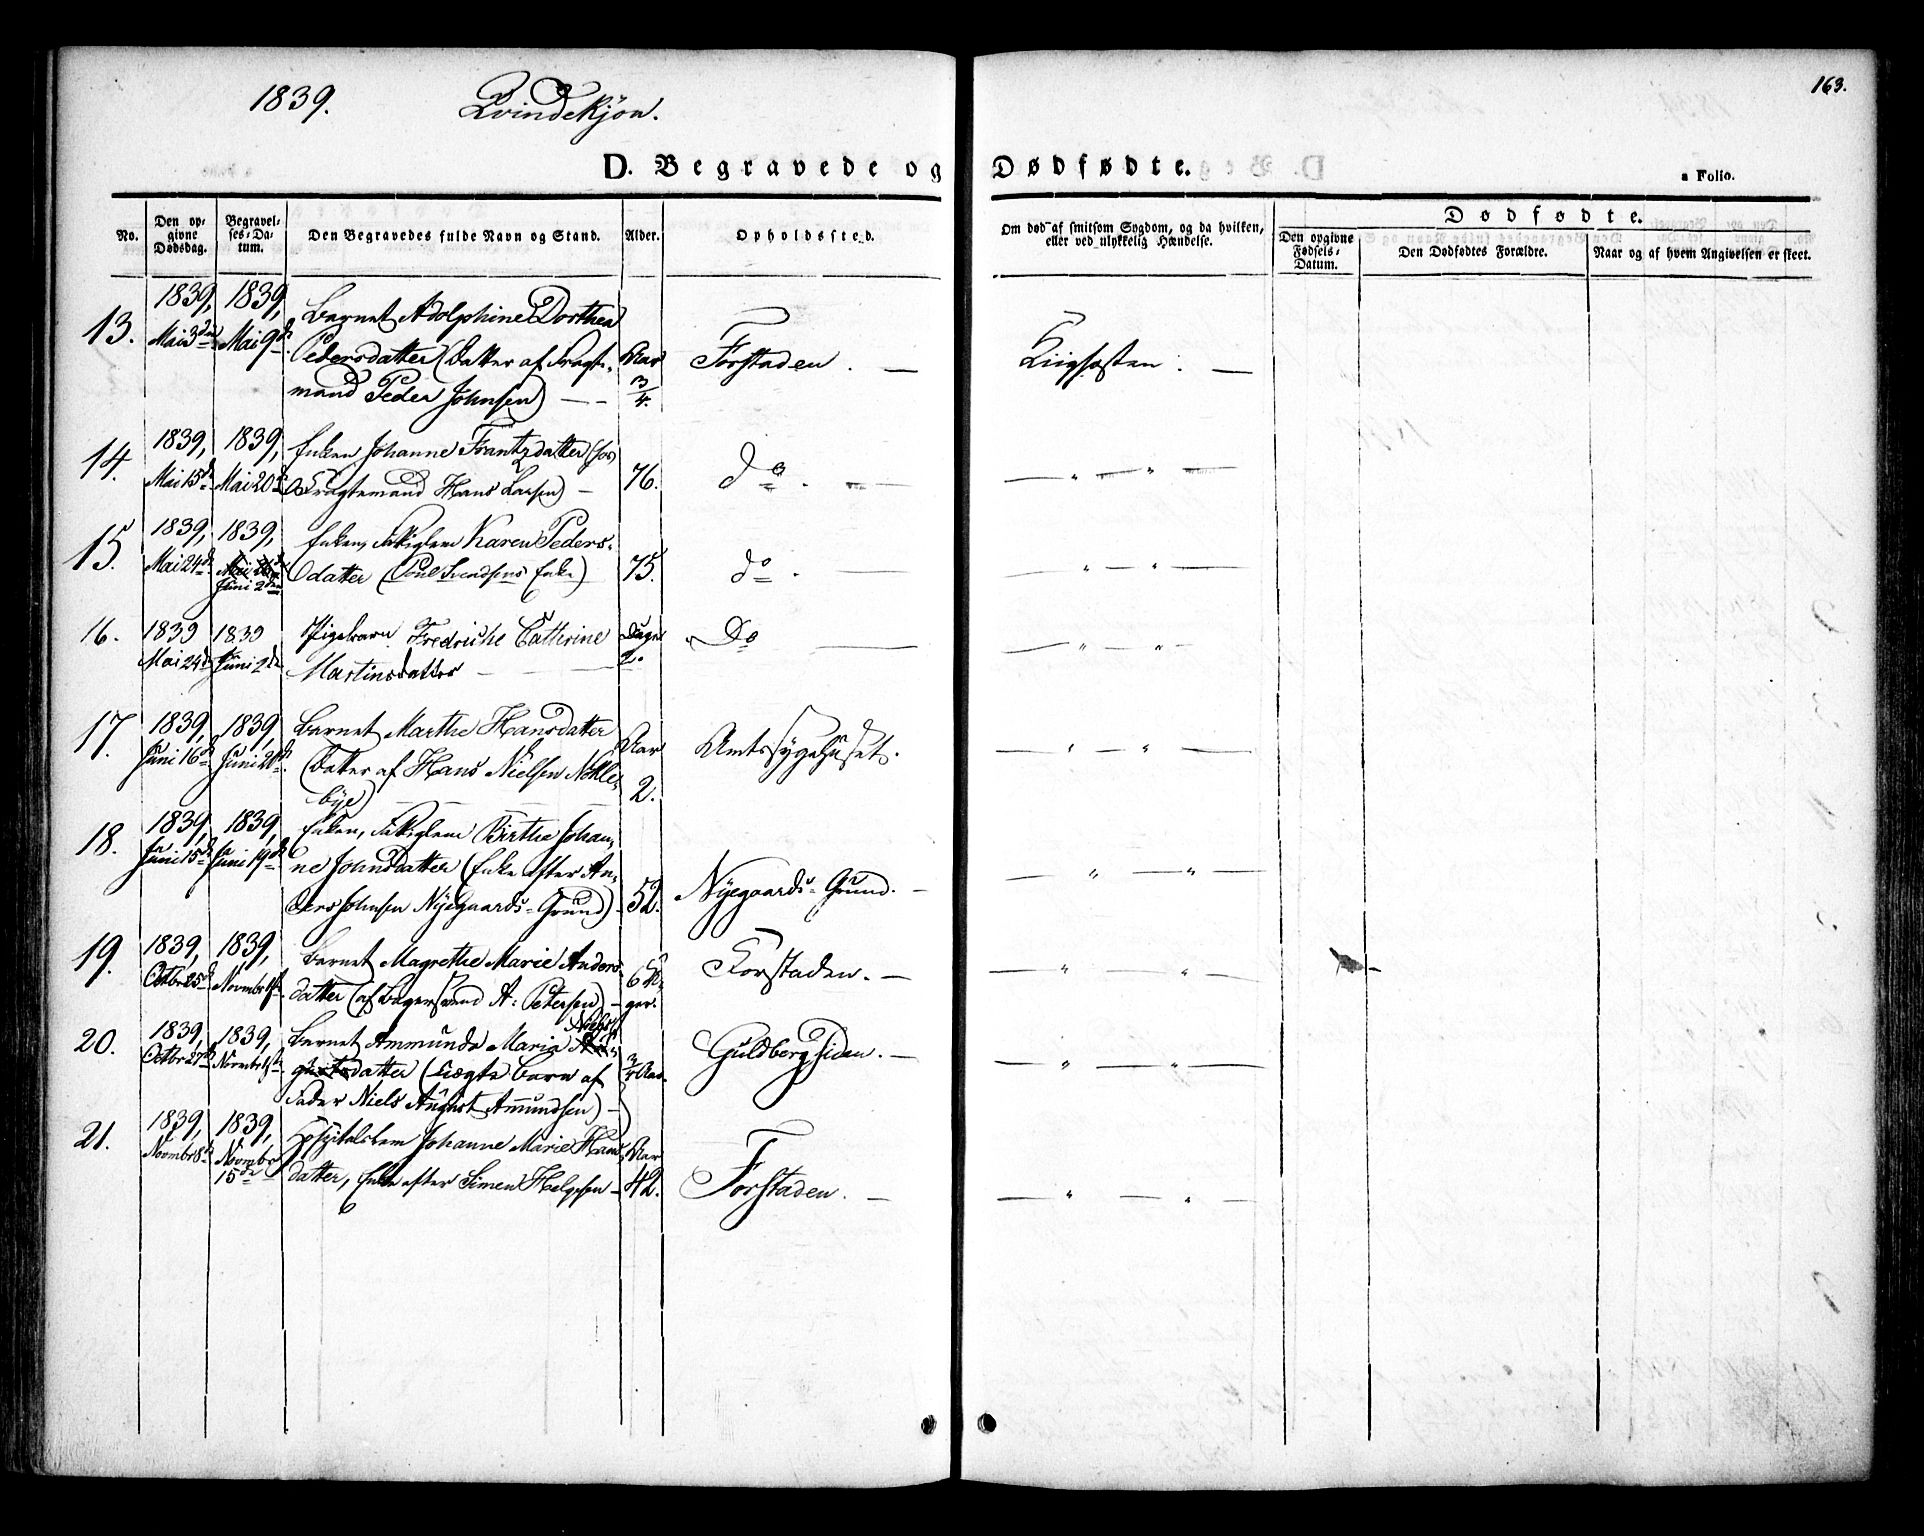 163.
1839. Qvindekjön.
D. Begravede og Dødfødte.
a Folio.
No.
Den opgivne Dødsdag.
Begravelses-Datum.
Den Begravedes fulde Navn og Stand.
Alder.
Opholdssted.
Om død af smitsom Sygdom, og da hvilken, eller ved ulykkelig Hændelse.
Dødfødte.
Den opgivne Fødsels-Datum.
Den Dødfødtes Forældre.
Naar og af hvem Angivelsen er skeet.
13. 1839, 1839, Barnet Adolphine Dorthea
Mai 3die Mai 9de Pedersdatter (Datter af Fragte- Aar Forstaden. — Kiighosten. —
mand Peder Johnsen) — 3/4.
14. 1839, 1839, Enken Johanne Frantzdatter
Mai 15de Mai 20de Fragtemand Hans Larsen) — 76. do. —
15. 1839, 1839, Enken, Fattiglem Karen Peders-
Mai 24de Juni 2den datter (Poul Svendsens Enke) 75. do. —
16. 1839 1839 Pigebarn Fredriche Cathrine Dage Do
Mai 24de Juni 2de Martinsdatter — 2.
17. 1839, 1839, Barnet Marthe Hansdatter Aar Amtssygehuset.
Juni 16de Juni 20de (Datter af Hans Nielsen Nokle-
bye) 2.
18. 1839, 1839, Enken, Fattiglem Birthe Johan-
Juni 15de Juni 19de ne Johnsdatter (Enke efter An-
ders Johnsen Nyegaards-Grund) 52. Nyegaards-Grund. —
19. 1839, 1839, Barnet Magrethe Marie Anders- 6 U- Forstaden. —
Octbr 25de Novmbr 1ste datter (af Bagersvend A: Petersen) — ger.
20. 1839, 1839, Barnet Ammunda Maria Niels- Guldbergsiden. —
Octbr 27de Novmbr 1ste datter (Ægte Barn af 3/4 Aar
Fader Niels August Amundsen) —
21. 1839, 1839, Hospitalslem Johanne Marie Hans- Aar
Novmbr 8de Novmbr datter, Enke efter Simen Helgesen — 42. Forstaden. —
15de